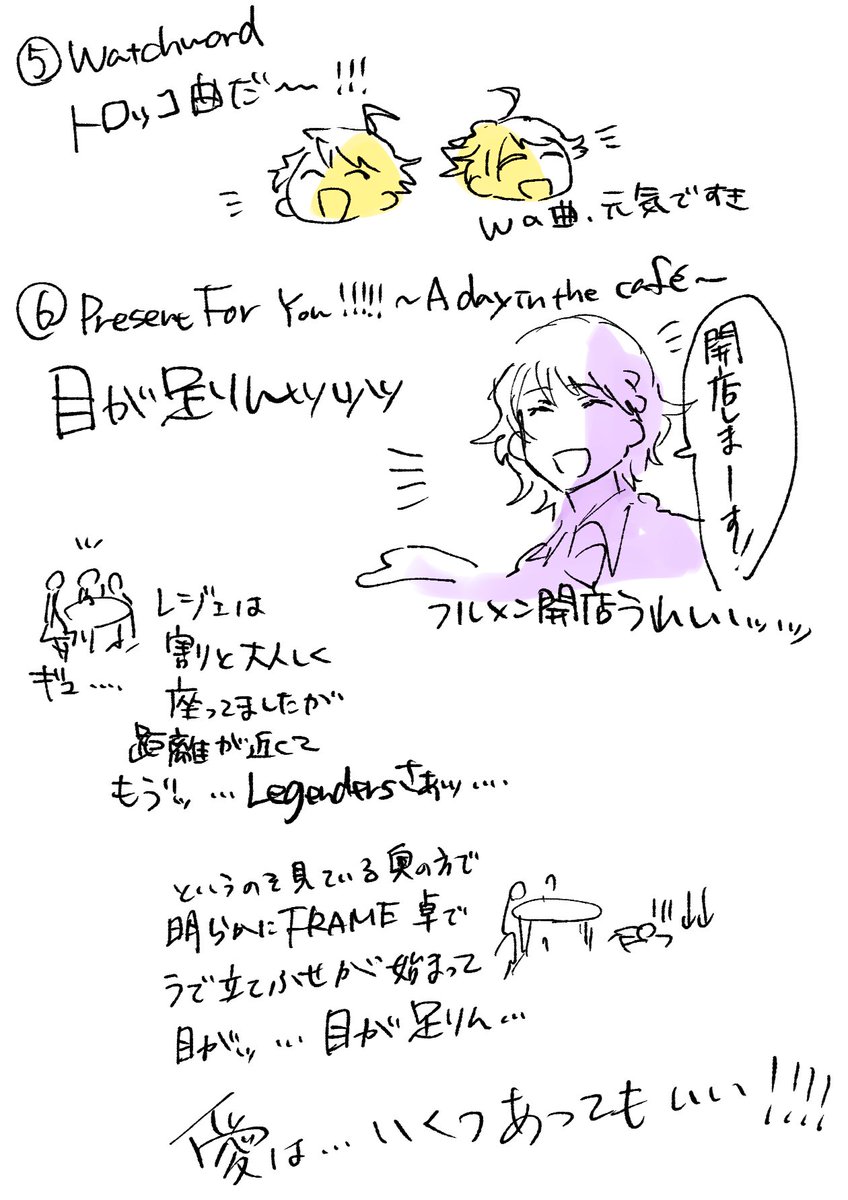 ⑤Watchword
トロッコ曲だ〜!!!
Wa曲、元気ですき
⑥Present For You!!!!!〜A day in the café〜
目が足りんッッッッ
開店しまーす!
フルメン開店うれしいッッッ
ギュ....
レジェは
割と大人しく
座ってましたが
距離が近くて
もうッ...Legendersさぁッ....
というのを見ている奥の方で
明らかにFRAME卓で
うで立てふせが始まって
目がッ...目が足りん...
愛は...いくつあってもいい!!!!